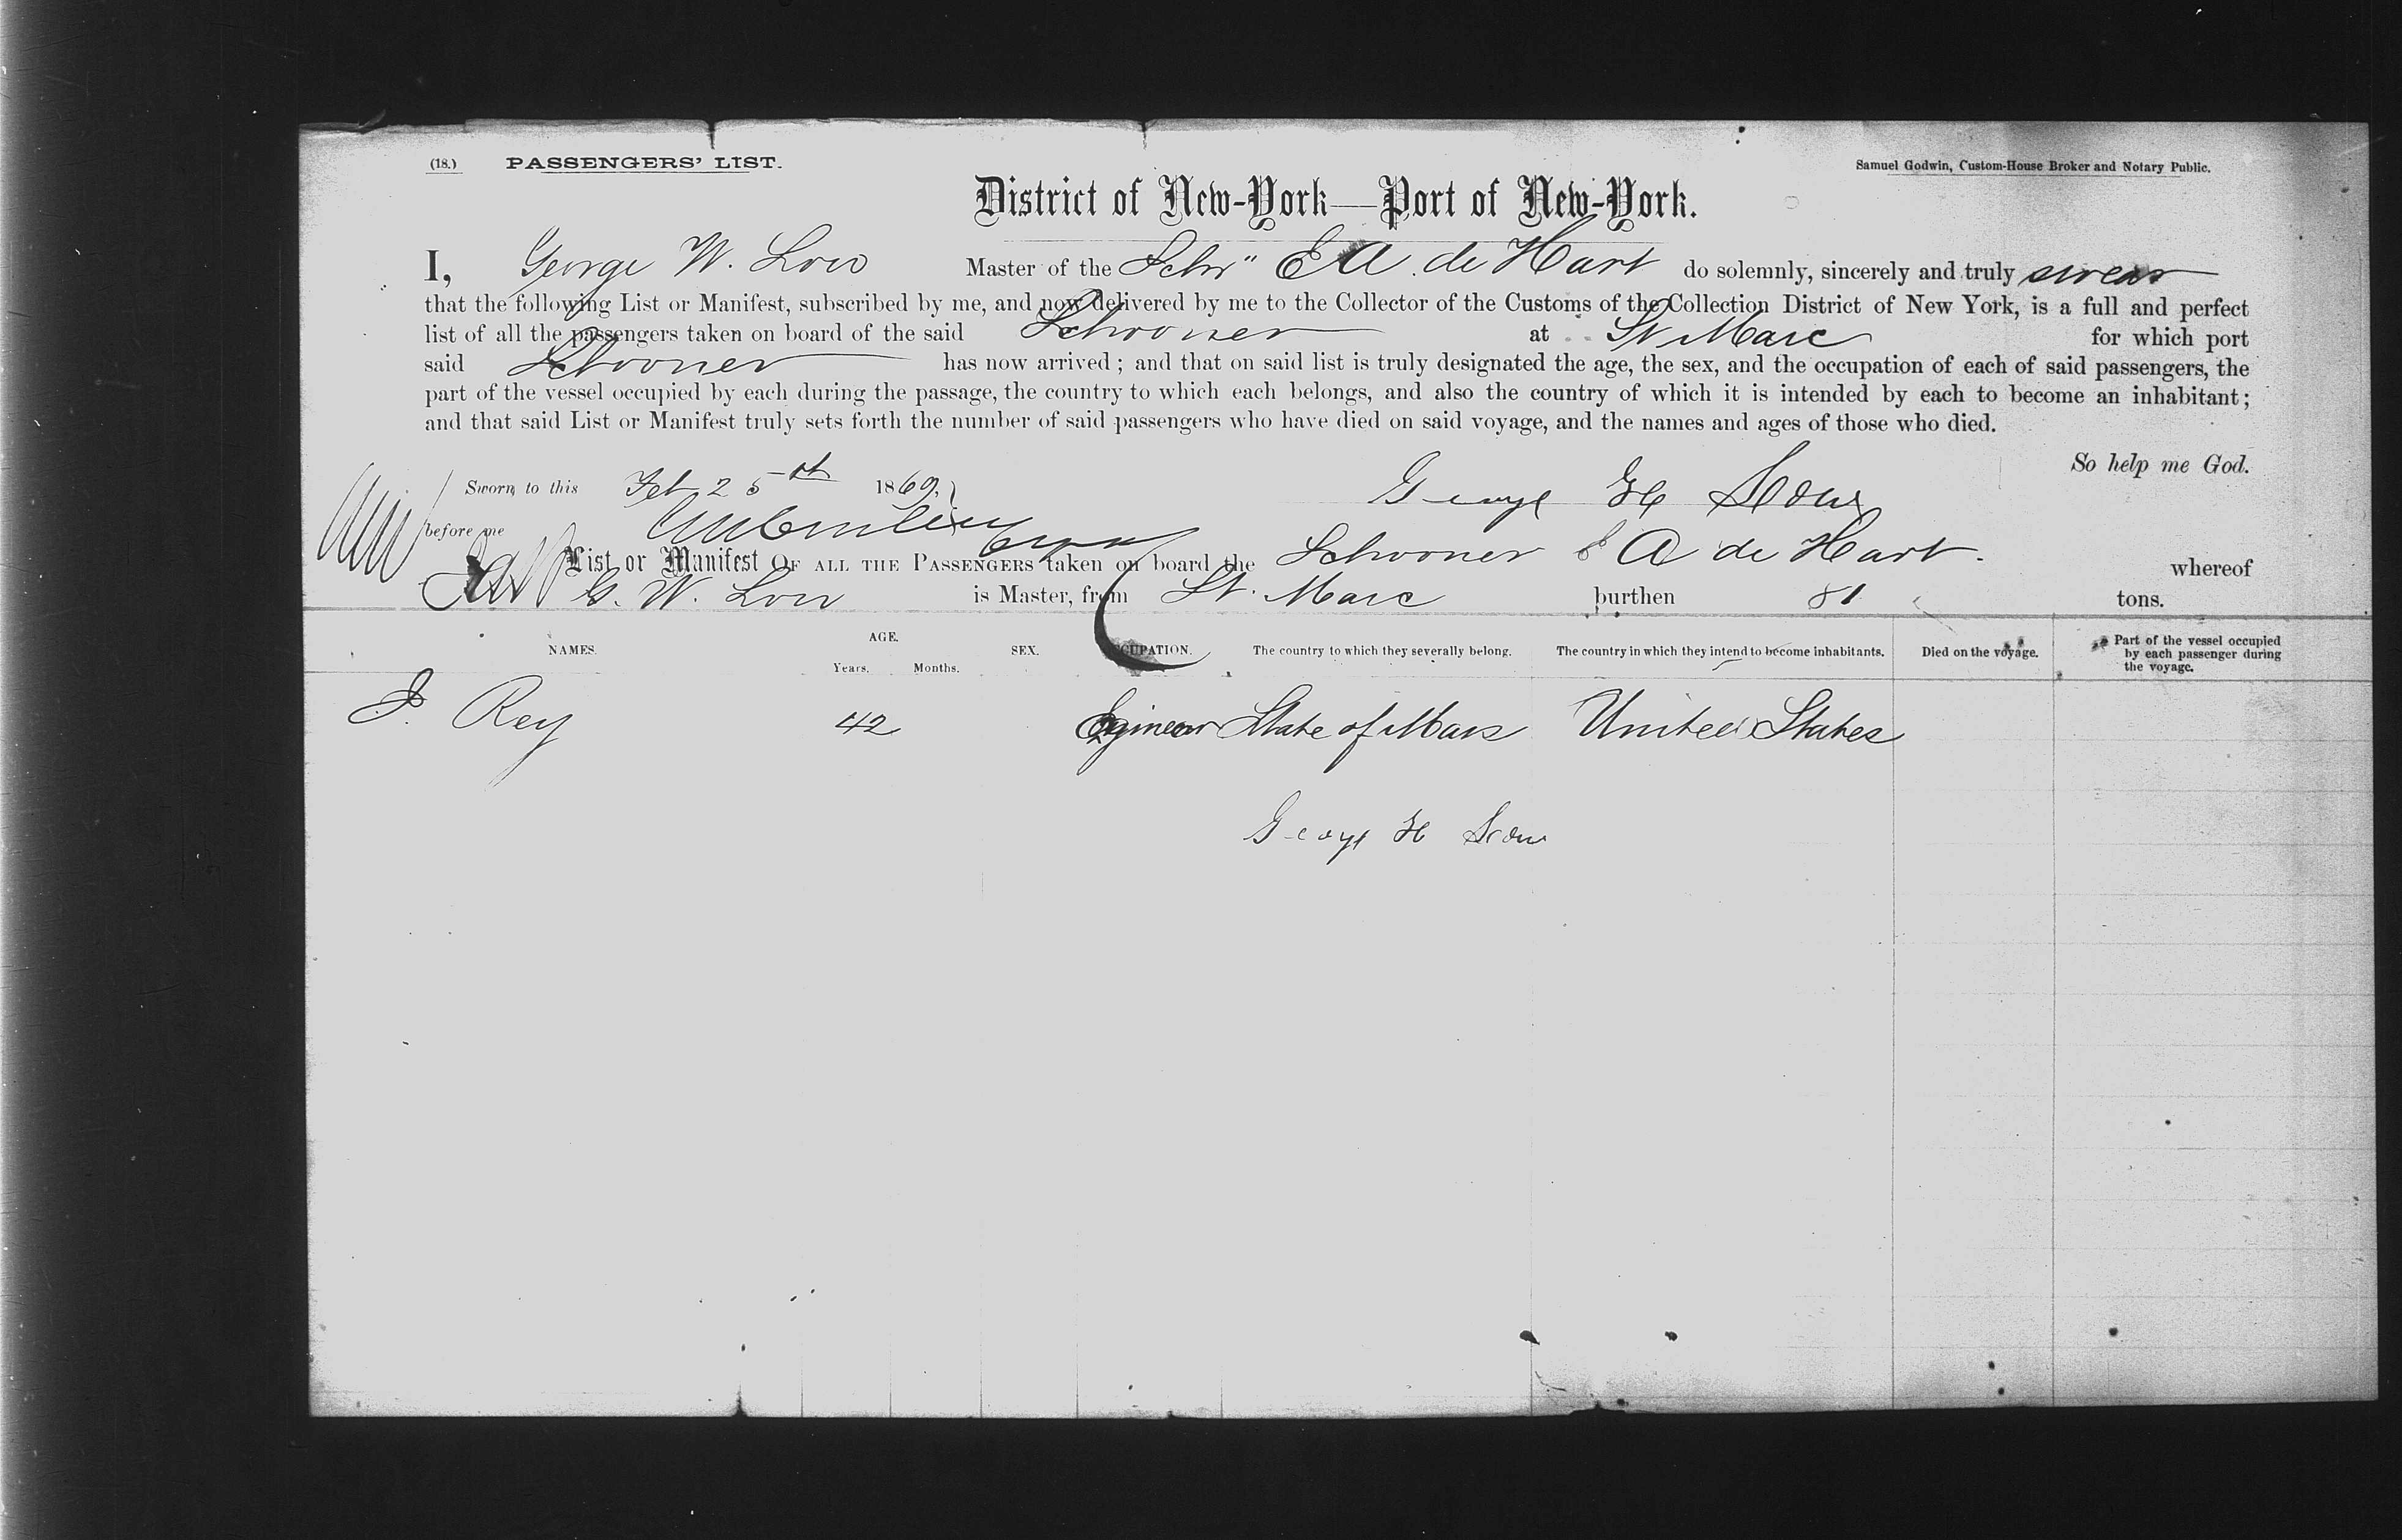 (18.) PASSENGERS' LIST.
Samuel Godwin, Custom-House Broker and Notary Public.
District of New-York—Port of New-York.
I, George W. Low Master of the Schr" E A. de Hart do solemnly, sincerely and truly swear
that the following List or Manifest, subscribed by me, and now delivered by me to the Collector of the Customs of the Collection District of New York, is a full and perfect
list of all the passengers taken on board of the said Schooner at St Marc for which port
said Schooner has now arrived; and that on said list is truly designated the age, the sex, and the occupation of each of said passengers, the
part of the vessel occupied by each during the passage, the country to which each belongs, and also the country of which it is intended by each to become an inhabitant;
and that said List or Manifest truly sets forth the number of said passengers who have died on said voyage, and the names and ages of those who died.
So help me God.
Sworn to this Feb 25th 1869.
George
before me
List or Manifest OF ALL THE PASSENGERS taken on board the Schooner E A de Hart. whereof
G. W. Low is Master, from St. Marc burthen 81 tons.
NAMES. AGE. Years. Months. SEX. OCCUPATION. The country to which they severally belong. The country in which they intend to become inhabitants. Died on the voyage. Part of the vessel occupied by each passenger during the voyage.
J. Rey 42 Egineer State of Mass United States
George